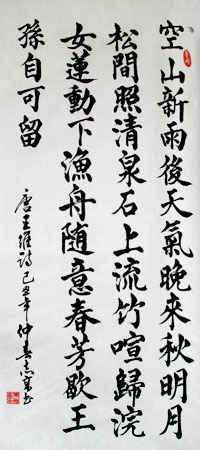 空山新雨後天氣晚來秋明月
松間照清泉石上流竹喧歸浣
女蓮動下漁舟随意春芳歇王
孫自可留
唐王維詩己丑年仲春志書